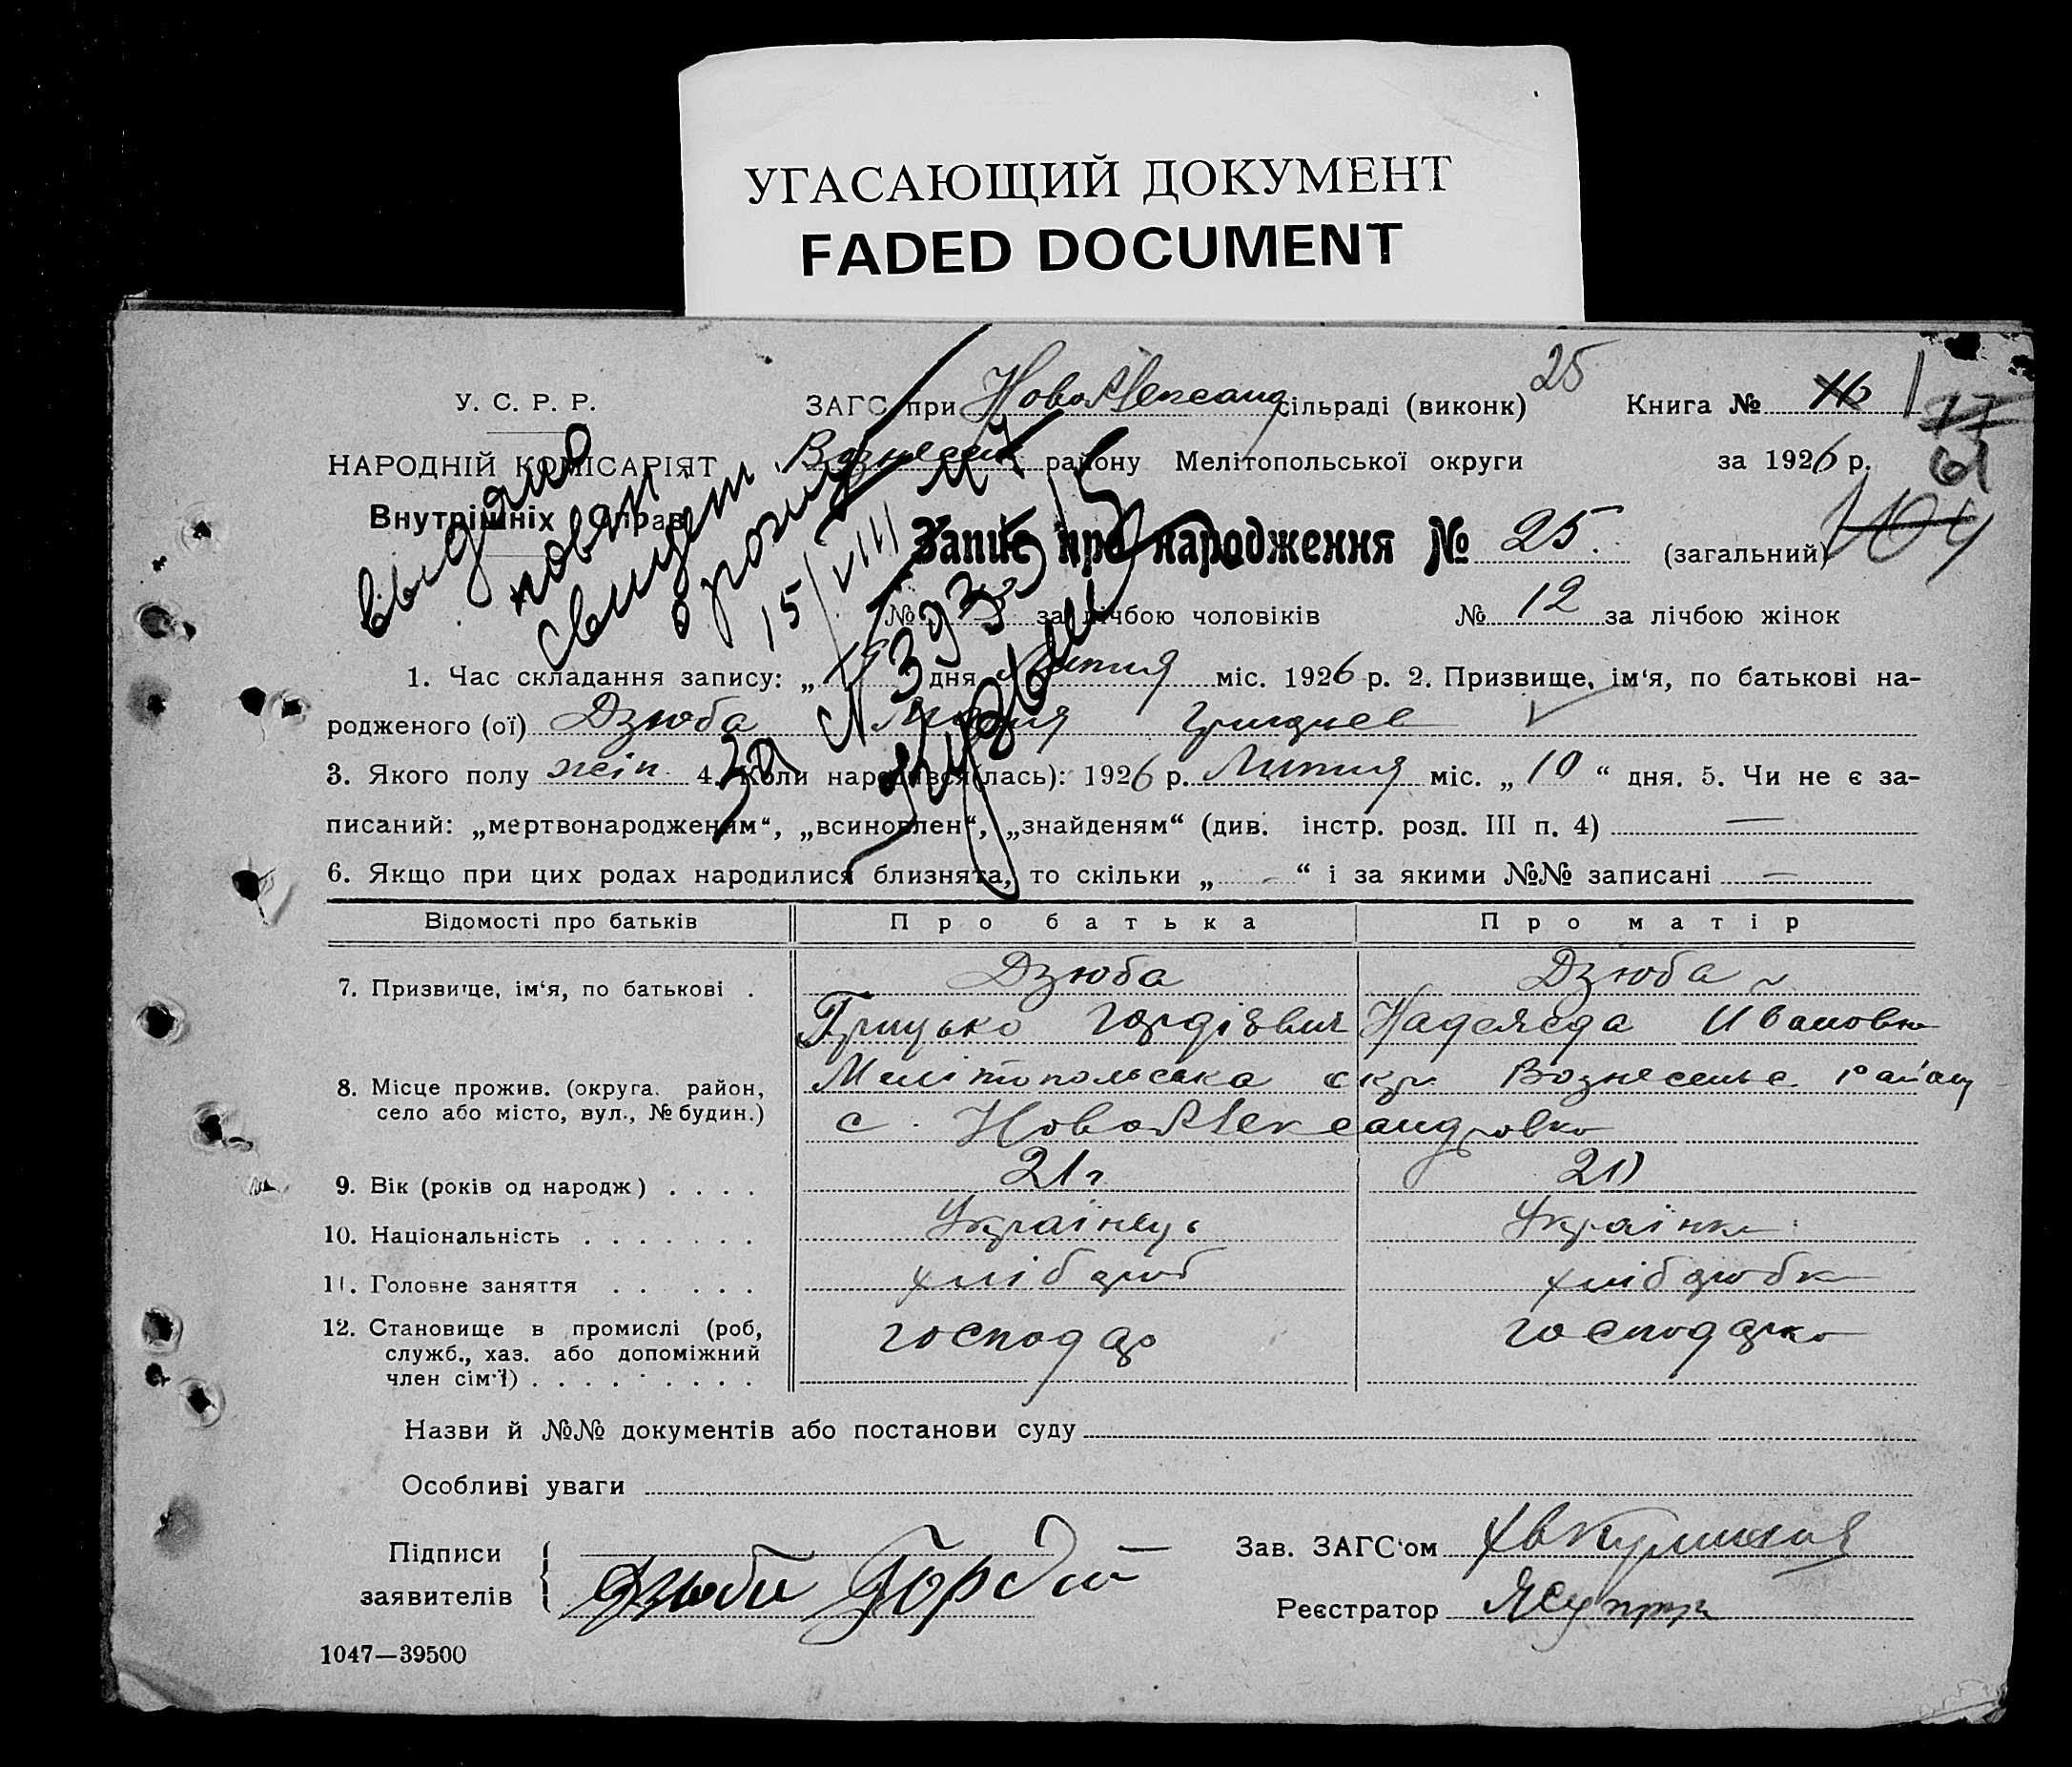 УГАСАЮЩИЙ ДОКУМЕНТ
FADED DOCUMENT
У. С. Р. Р.
НАРОДНІЙ КОМІСАРІЯТ
Внутрішніх Справ
ЗАГС при НовоАлександ сільраді (виконк) 25 Книга №
Вознесен району Мелітопольської округи за 1926 р.
61
104
Запис про народження № 25. (загальний)
№ за лічбою чоловіків № 12 за лічбою жінок
видано
повторн
свидет
о рожд
15/VIII
за № 393
1. Час складання запису: „19 дня Липня міс. 1926 р. 2. Призвище, ім‘я, по батькові на-
родженого (ої) Дзюба Лидія Грицьев
3. Якого полу жін. 4. Коли народився(лась): 1926 р. Липня міс. „10“ дня. 5. Чи не є за-
писаний: „мертвонародженим“, „всиновлен“, „знайденям“ (див. інстр. розд. III п. 4) —
6. Якщо при цих родах народилися близнята, то скільки „ - “ і за якими №№ записані —
Відомості про батьків Про батька Про матір
7. Призвище, ім‘я, по батькові . Дзюба Дзюба
Грицько Гордієвич Надежда Ивановна
8. Місце прожив. (округа. район, село або місто, вул., № будин.) Мелітопольська окр. Вознесенье району
с. НовоАлександровка
9. Вік (років од народж) . . . . 21 г 21
10. Національність . . . . . . . Українець Українка
11. Головне заняття . . . . . хлібороб хліборобка
12. Становище в промислі (роб, служб., хаз. або допоміжний член сім‘ї) . . . . . . . . . господар господарка
Назви й №№ документів або постанови суду
Особливі уваги
Підписи заявителів Дзюба Гордій
Зав. ЗАГС‘ом
Реєстратор
1047—39500